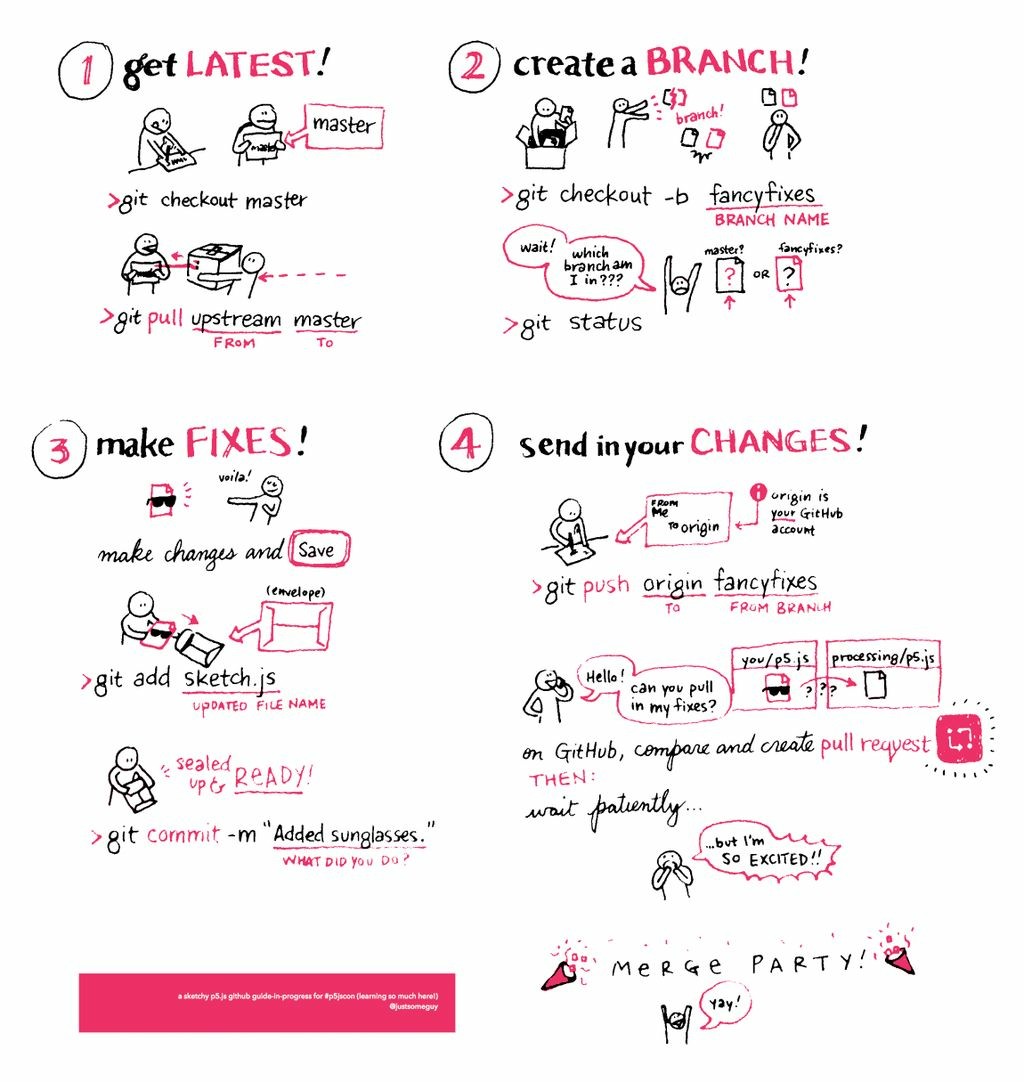 1 get LATEST!
master
master
>git checkout master
>git pull upstream master
FROM TO
2 create a BRANCH!
branch!
>git checkout -b fancyfixes
BRANCH NAME
wait!
which
branch am
I in???
master?
fancyfixes?
? OR ?
>git status
3 make FIXES!
voila!
make changes and Save
(envelope)
>git add sketch.js
UPDATED FILE NAME
sealed
up & READY!
>git commit -m "Added sunglasses."
WHAT DID YOU DO?
4 send in your CHANGES!
FROM
Me
TO origin
i origin is
your GitHub
account
>git push origin fancyfixes
TO FROM BRANCH
Hello!
can you pull
in my fixes?
you/p5.js
processing/p5.js
? ? ?
on GitHub, compare and create pull request
THEN:
wait patiently...
...but I'm
SO EXCITED!!
MERGE PARTY!
yay!
a sketchy p5.js github guide-in-progress for #p5jscon (learning so much here!)
@justsomeguy